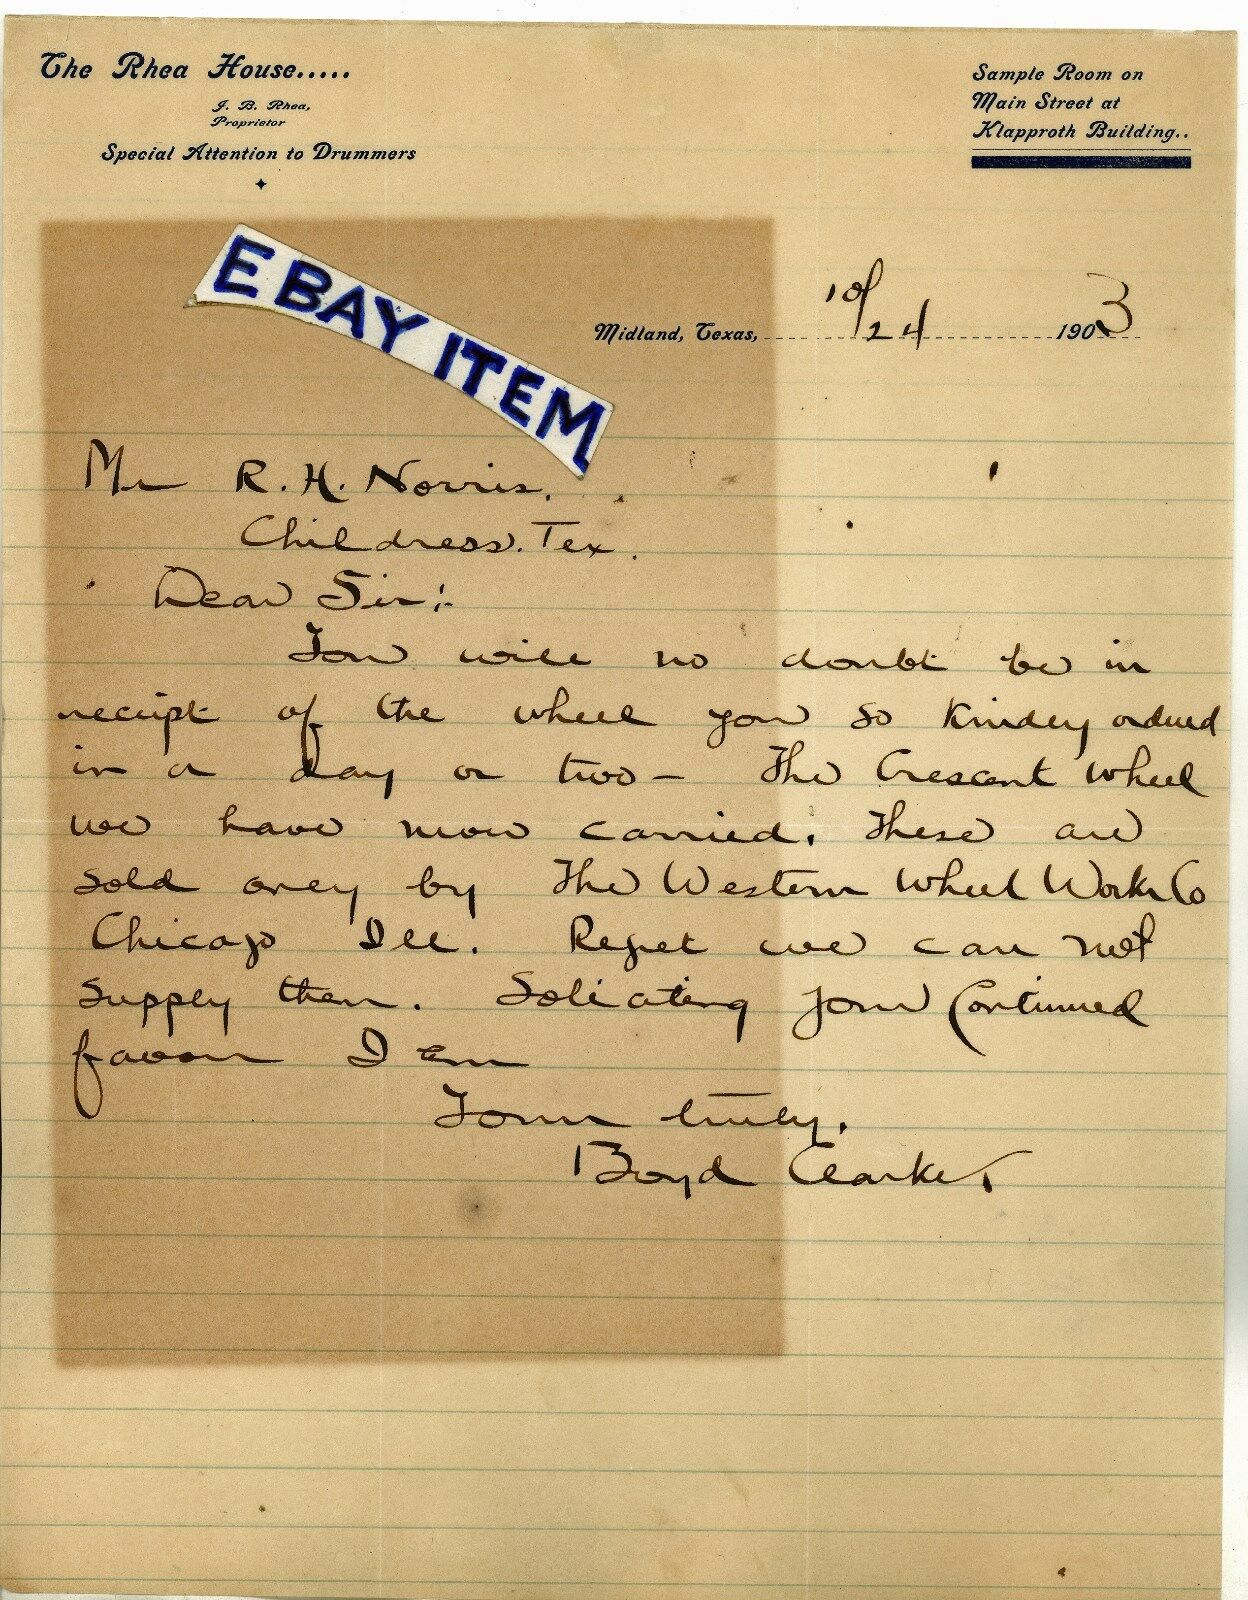 The Rhea House.....
J. B. Rhea,
Proprietor
Special Attention to Drummers
Sample Room on
Main Street at
Klapproth Building..
EBAY ITEM
Midland, Texas, 10/24 1903
Mr R. H. Norris.
Childress. Tex.
Dear Sir:-
You will no doubt be in
receipt of the wheel you so kindly ordered
in a day or two - The Crescent wheel
we have never carried. These are
sold only by The Western Wheel Works Co
Chicago Ill. Regret we can not
supply them. Soliciting your Continued
favor I am
Yours truly.
Boyd Clarke